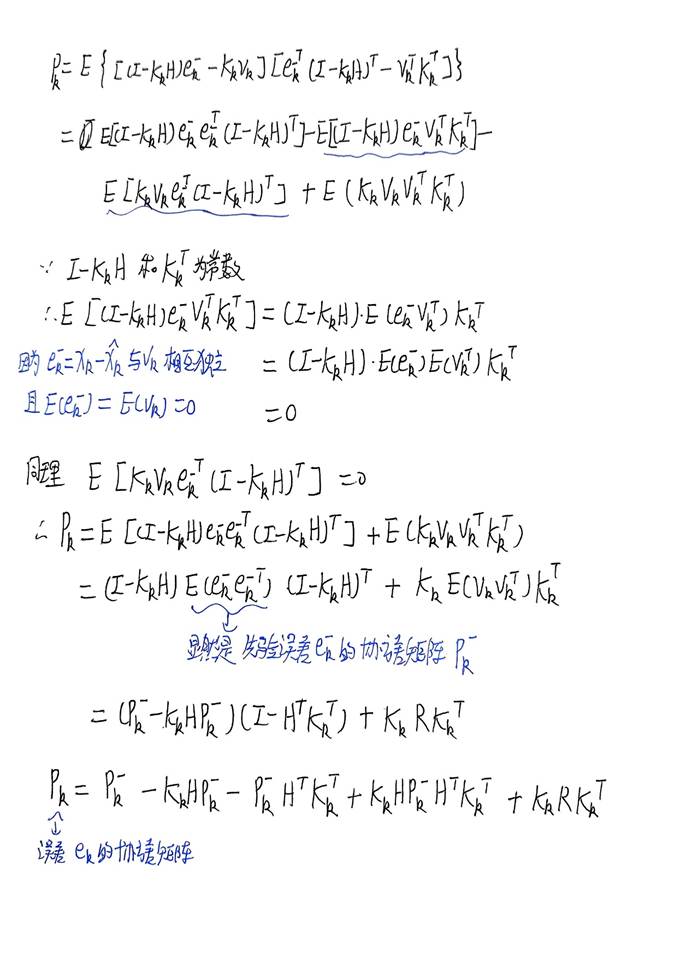 P_k = E{[(I-K_kH)e_k^- - K_kV_k][e_k^{-T}(I-K_kH)^T - V_k^TK_k^T]}
= E[(I-K_kH)e_k^-e_k^{-T}(I-K_kH)^T] - E[(I-K_kH)e_k^-V_k^TK_k^T] -
E[K_kV_ke_k^{-T}(I-K_kH)^T] + E(K_kV_kV_k^TK_k^T)
∵ I-K_kH 和 K_k^T 为常数
∴ E[(I-K_kH)e_k^-V_k^TK_k^T] = (I-K_kH)·E(e_k^-V_k^T)K_k^T
因为 e_k^- = x_k - \hat{x}_k^- 与 V_k 相互独立 = (I-K_kH)·E(e_k^-)E(V_k^T)K_k^T
且 E(e_k^-) = E(V_k) = 0 = 0
同理 E[K_kV_ke_k^{-T}(I-K_kH)^T] = 0
∴ P_k = E[(I-K_kH)e_k^-e_k^{-T}(I-K_kH)^T] + E(K_kV_kV_k^TK_k^T)
= (I-K_kH)E(e_k^-e_k^{-T})(I-K_kH)^T + K_kE(V_kV_k^T)K_k^T
显然是 先验误差 e_k^- 的协方差矩阵 P_k^-
= (P_k^- - K_kHP_k^-)(I-H^TK_k^T) + K_kRK_k^T
P_k = P_k^- - K_kHP_k^- - P_k^-H^TK_k^T + K_kHP_k^-H^TK_k^T + K_kRK_k^T
误差 e_k 的协方差矩阵